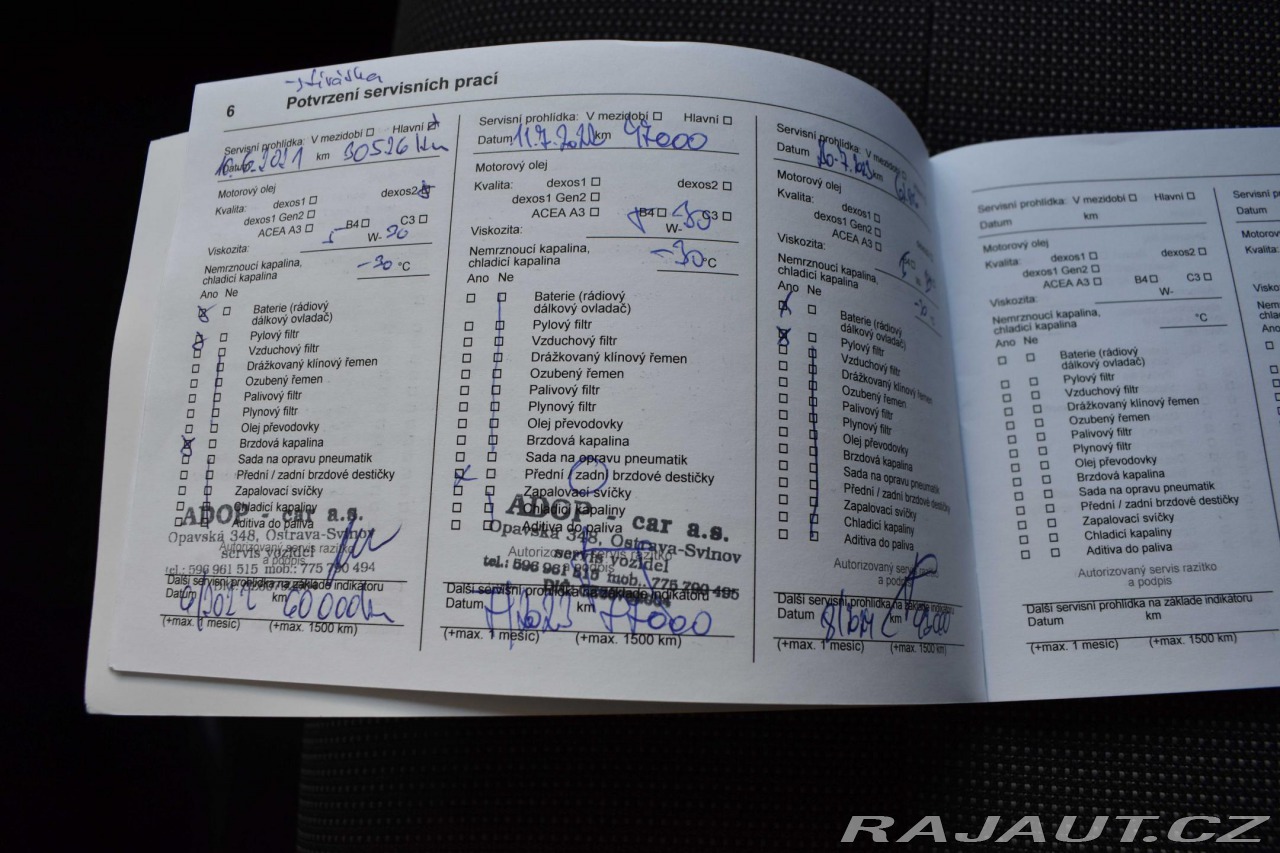 6
Potvrzení servisních prací
Servisní prohlídka: V mezidobí □ Hlavní □
Datum 16.6.2021 km 30526 km
Motorový olej
Kvalita: dexos1 □ dexos2 □
dexos1 Gen2 □
ACEA A3 □ B4 □ C3 □
Viskozita: 5 W- 30
Nemrznoucí kapalina,
chladicí kapalina -30 °C
Ano Ne
Baterie (rádiový
dálkový ovladač)
Pylový filtr
Vzduchový filtr
Drážkovaný klínový řemen
Ozubený řemen
Palivový filtr
Plynový filtr
Olej převodovky
Brzdová kapalina
Sada na opravu pneumatik
Přední / zadní brzdové destičky
Zapalovací svíčky
Chladicí kapaliny
Aditiva do paliva
ADOP - car a.s.
Opavská 348, Ostrava-Svinov
servis vozidel
Autorizovaný servis razítko
a podpis
tel.: 596 961 515 mob.: 775 790 494
Další servisní prohlídka na základě indikátoru
Datum km 60000km
(+max. 1 měsíc) (+max. 1500 km)
Servisní prohlídka: V mezidobí □ Hlavní □
Datum 11.7.2022 km 47000
Motorový olej
Kvalita: dexos1 □ dexos2 □
dexos1 Gen2 □
ACEA A3 □ B4 □ C3 □
Viskozita: W- 30
Nemrznoucí kapalina,
chladicí kapalina -30 °C
Ano Ne
Baterie (rádiový
dálkový ovladač)
Pylový filtr
Vzduchový filtr
Drážkovaný klínový řemen
Ozubený řemen
Palivový filtr
Plynový filtr
Olej převodovky
Brzdová kapalina
Sada na opravu pneumatik
Přední / zadní brzdové destičky
Zapalovací svíčky
Chladicí kapaliny
Aditiva do paliva
ADOP - car a.s.
Opavská 348, Ostrava-Svinov
Autorizovaný servis razítko
a podpis
servis vozidel
tel.: 596 961 515 mob.: 775 790 495
Další servisní prohlídka na základě indikátoru
Datum 7/2023 km 77000
(+max. 1 měsíc) (+max. 1500 km)
Servisní prohlídka: V mezidobí □
Datum km
Motorový olej
Kvalita: dexos1 □
dexos1 Gen2 □
ACEA A3 □
Viskozita:
Nemrznoucí kapalina,
chladicí kapalina -30 °C
Ano Ne
Baterie (rádiový
dálkový ovladač)
Pylový filtr
Vzduchový filtr
Drážkovaný klínový řemen
Ozubený řemen
Palivový filtr
Plynový filtr
Olej převodovky
Brzdová kapalina
Sada na opravu pneumatik
Přední / zadní brzdové destičky
Zapalovací svíčky
Chladicí kapaliny
Aditiva do paliva
Autorizovaný servis razítko
a podpis
Další servisní prohlídka na základě indikátoru
Datum 8/2024 km
(+max. 1 měsíc) (+max. 1500 km)
Servisní prohlídka: V mezidobí □ Hlavní □
Datum km
Motorový olej
Kvalita: dexos1 □ dexos2 □
dexos1 Gen2 □
ACEA A3 □ B4 □ C3 □
Viskozita: W-
Nemrznoucí kapalina,
chladicí kapalina °C
Ano Ne
Baterie (rádiový
dálkový ovladač)
Pylový filtr
Vzduchový filtr
Drážkovaný klínový řemen
Ozubený řemen
Palivový filtr
Plynový filtr
Olej převodovky
Brzdová kapalina
Sada na opravu pneumatik
Přední / zadní brzdové destičky
Zapalovací svíčky
Chladicí kapaliny
Aditiva do paliva
Autorizovaný servis razítko
a podpis
Další servisní prohlídka na základě indikátoru
Datum km
(+max. 1 měsíc) (+max. 1500 km)
Servisní
Datum
Kvalita:
RAJAUT.CZ